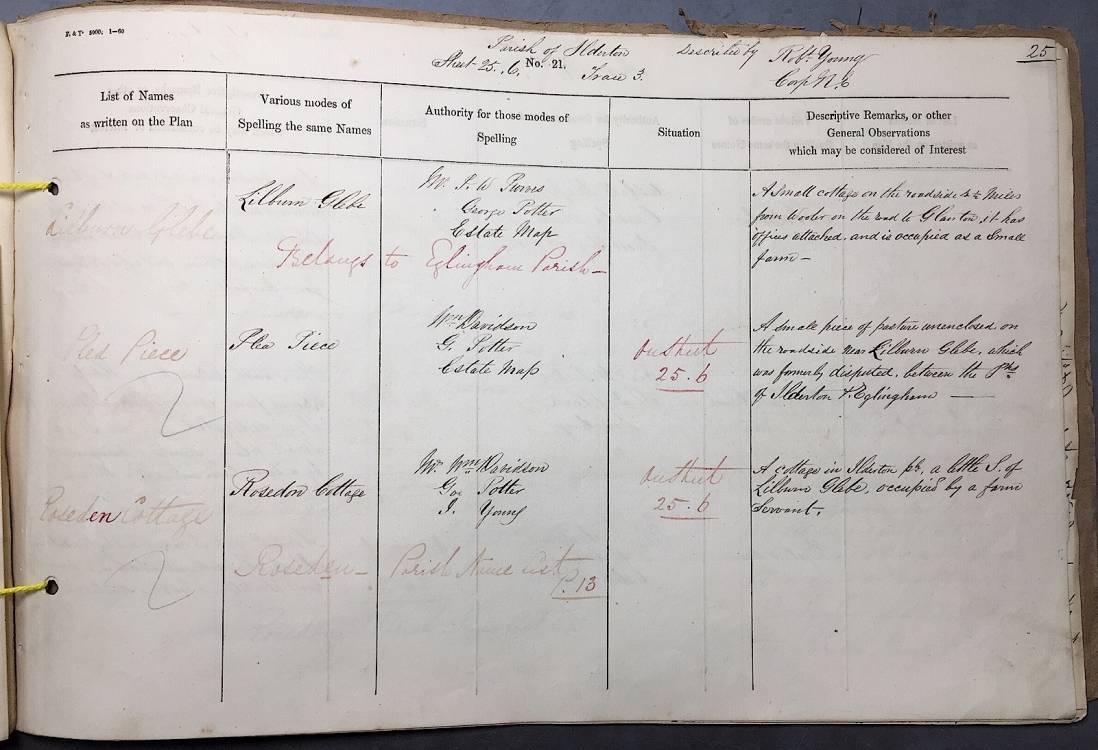 F. & Tº 5000; 1—60
25
Parish of Ilderton
Sheet 25.. 6. No. 21. Trace 3.
Described by Robt. Young
Corpl R.E
List of Names
as written on the Plan
Various modes of
Spelling the same Names
Authority for those modes of
Spelling
Situation
Descriptive Remarks, or other
General Observations
which may be considered of Interest
Lilburn Glebe
Lilburn Glebe
Mr. T. W
George Potter
Estate Map
A Small cottage on the roadside Miles
from Wooler on the road to Glanton, it has
offices attached, and is occupied as a Small
farm —
Belongs to Eglingham Parish —
Piece
Plea Piece
Wm Davidson
G. Potter
Estate Map
On Sheet
25. 6
A small piece of pasture unenclosed on
the roadside near Lilburn Glebe, which
was formerly disputed, between the Phs
of Ilderton & Eglingham —
Roseden Cottage
Rosedon Cottage
Mr. Wm Davidson
Geo Potter
J. Young
On Sheet
25. 6
A cottage in Ilderton ph, a little S. of
Lilburn Glebe, occupied by a farm
Servant.
Roseden — Parish Name
P. 13